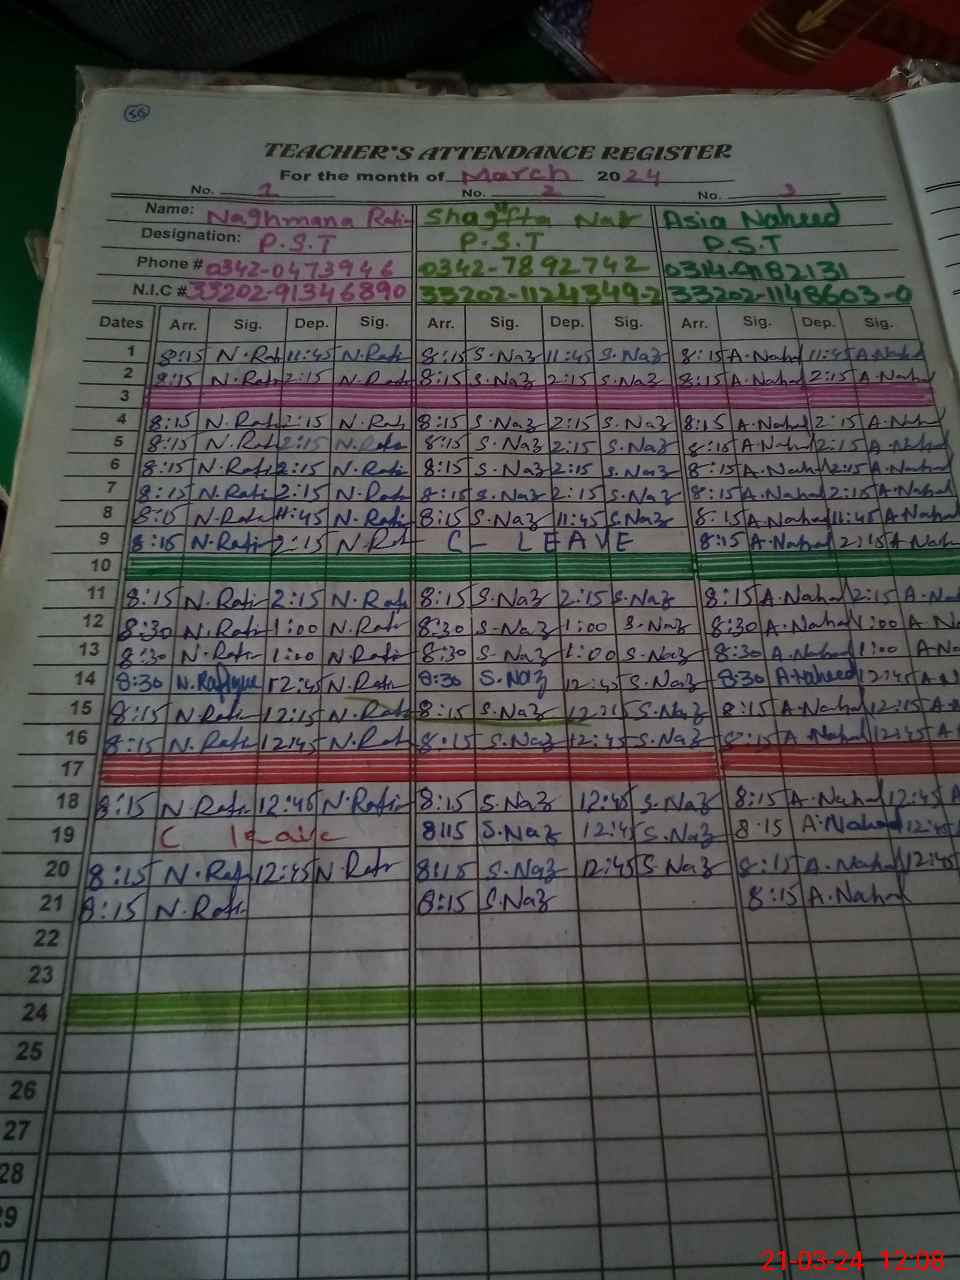 36
TEACHER'S ATTENDANCE REGISTER
For the month of March 2024
No. 1 No. 2 No. 3
Name: Naghmana Rafi Shagufta Naz Asia Naheed
Designation: P.S.T P.S.T P.S.T
Phone # 0342-0473946 0342-7892742 0314-9182131
N.I.C # 33202-91346890 33202-1124349-2 33202-1148603-0
Dates Arr. Sig. Dep. Sig. Arr. Sig. Dep. Sig. Arr. Sig. Dep. Sig.
1 8:15 N.Rafi 11:45 N.Rafi 8:15 S.Naz 11:45 S.Naz 8:15 A.Nahd 11:45 A.Nahd
2 8:15 N.Rafi 2:15 N.Rafi 8:15 S.Naz 2:15 S.Naz 8:15 A.Nahd 2:15 A.Nahd
3
4 8:15 N.Rafi 2:15 N.Rafi 8:15 S.Naz 2:15 S.Naz 8:15 A.Nahd 2:15 A.Nahd
5 8:15 N.Rafi 2:15 N.Rafi 8:15 S.Naz 2:15 S.Naz 8:15 A.Nahd 2:15 A.Nahd
6 8:15 N.Rafi 2:15 N.Rafi 8:15 S.Naz 2:15 S.Naz 8:15 A.Nahd 2:15 A.Nahd
7 8:15 N.Rafi 2:15 N.Rafi 8:15 S.Naz 2:15 S.Naz 8:15 A.Nahd 2:15 A.Nahd
8 8:15 N.Rafi 11:45 N.Rafi 8:15 S.Naz 11:45 S.Naz 8:15 A.Nahd 11:45 A.Nahd
9 8:15 N.Rafi 2:15 N.Rafi C- LEAVE 8:15 A.Nahd 2:15 A.Nahd
10
11 8:15 N.Rafi 2:15 N.Rafi 8:15 S.Naz 2:15 S.Naz 8:15 A.Nahd 2:15 A.Na
12 8:30 N.Rafi 1:00 N.Rafi 8:30 S.Naz 1:00 S.Naz 8:30 A.Nahd 1:00 A.Na
13 8:30 N.Rafi 1:00 N.Rafi 8:30 S.Naz 1:00 S.Naz 8:30 A.Nahd 1:00 A.Na
14 8:30 N.Rafique 12:45 N.Rafi 8:30 S.Naz 12:45 S.Naz 8:30 A.Naheed 12:45 A.N
15 8:15 N.Rafi 12:15 N.Rafi 8:15 S.Naz 12:15 S.Naz 8:15 A.Nahd 12:15 A.N
16 8:15 N.Rafi 12:45 N.Rafi 8:15 S.Naz 12:45 S.Naz 8:15 A.Nahd 12:45 A.
17
18 8:15 N.Rafi 12:45 N.Rafi 8:15 S.Naz 12:45 S.Naz 8:15 A.Nahd 12:45 A
19 C leave 8:15 S.Naz 12:45 S.Naz 8:15 A.Nahd 12:45
20 8:15 N.Rafi 12:45 N.Rafi 8:15 S.Naz 12:45 S.Naz 8:15 A.Nahd 12:45
21 8:15 N.Rafi 8:15 S.Naz 8:15 A.Nahd
22
23
24
25
26
27
28
29
0
21-03-24 12:08